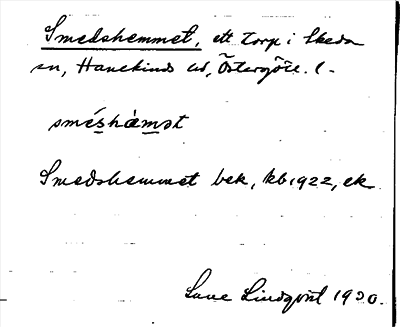 Smedshemmet, ett torp i Skeda
sn, Hanekinds hd, Östergötl. l.
smés̲hàm̲ət
Smedshemmet bek, kb 1922, ek
Sune Lindqvist 1920.